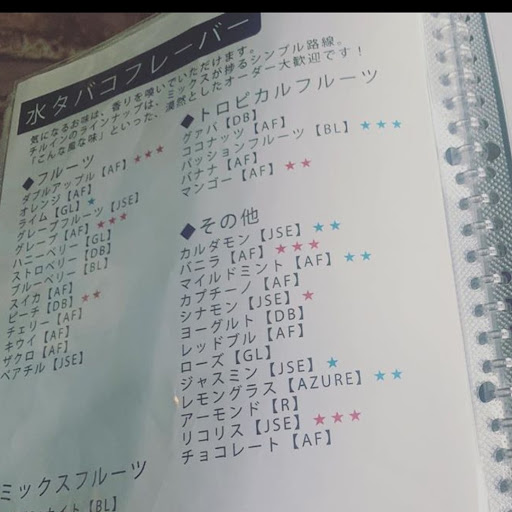 水タバコフレーバー
気になるお味は、香りを嗅いでいただけます。
チルインのラインナップは、ミックスが捗るシンプル路線。
「こんな風な味」といった、漠然としたオーダー大歓迎です！
◆フルーツ
ダブルアップル【AF】★★★
オレンジ【AF】
ライム【GL】★
グレープフルーツ【JSE】
グレープ【AF】★★★
ハニーベリー【GL】
ストロベリー【DB】
ブルーベリー【BL】
スイカ【AF】
ピーチ【DB】★★
チェリー【AF】
キウイ【AF】
ザクロ【AF】
ペアチル【JSE】
ミックスフルーツ
【BL】
◆トロピカルフルーツ
グァバ【DB】
ココナッツ【AF】
パッションフルーツ【BL】★★★
バナナ【AF】
マンゴー【AF】★★
◆その他
カルダモン【JSE】★★
バニラ【AF】★★★
マイルドミント【AF】★★
カプチーノ【AF】
シナモン【JSE】★
ヨーグルト【DB】
レッドブル【AF】
ローズ【GL】
ジャスミン【JSE】★
レモングラス【AZURE】★★
アーモンド【R】
リコリス【JSE】★★★
チョコレート【AF】